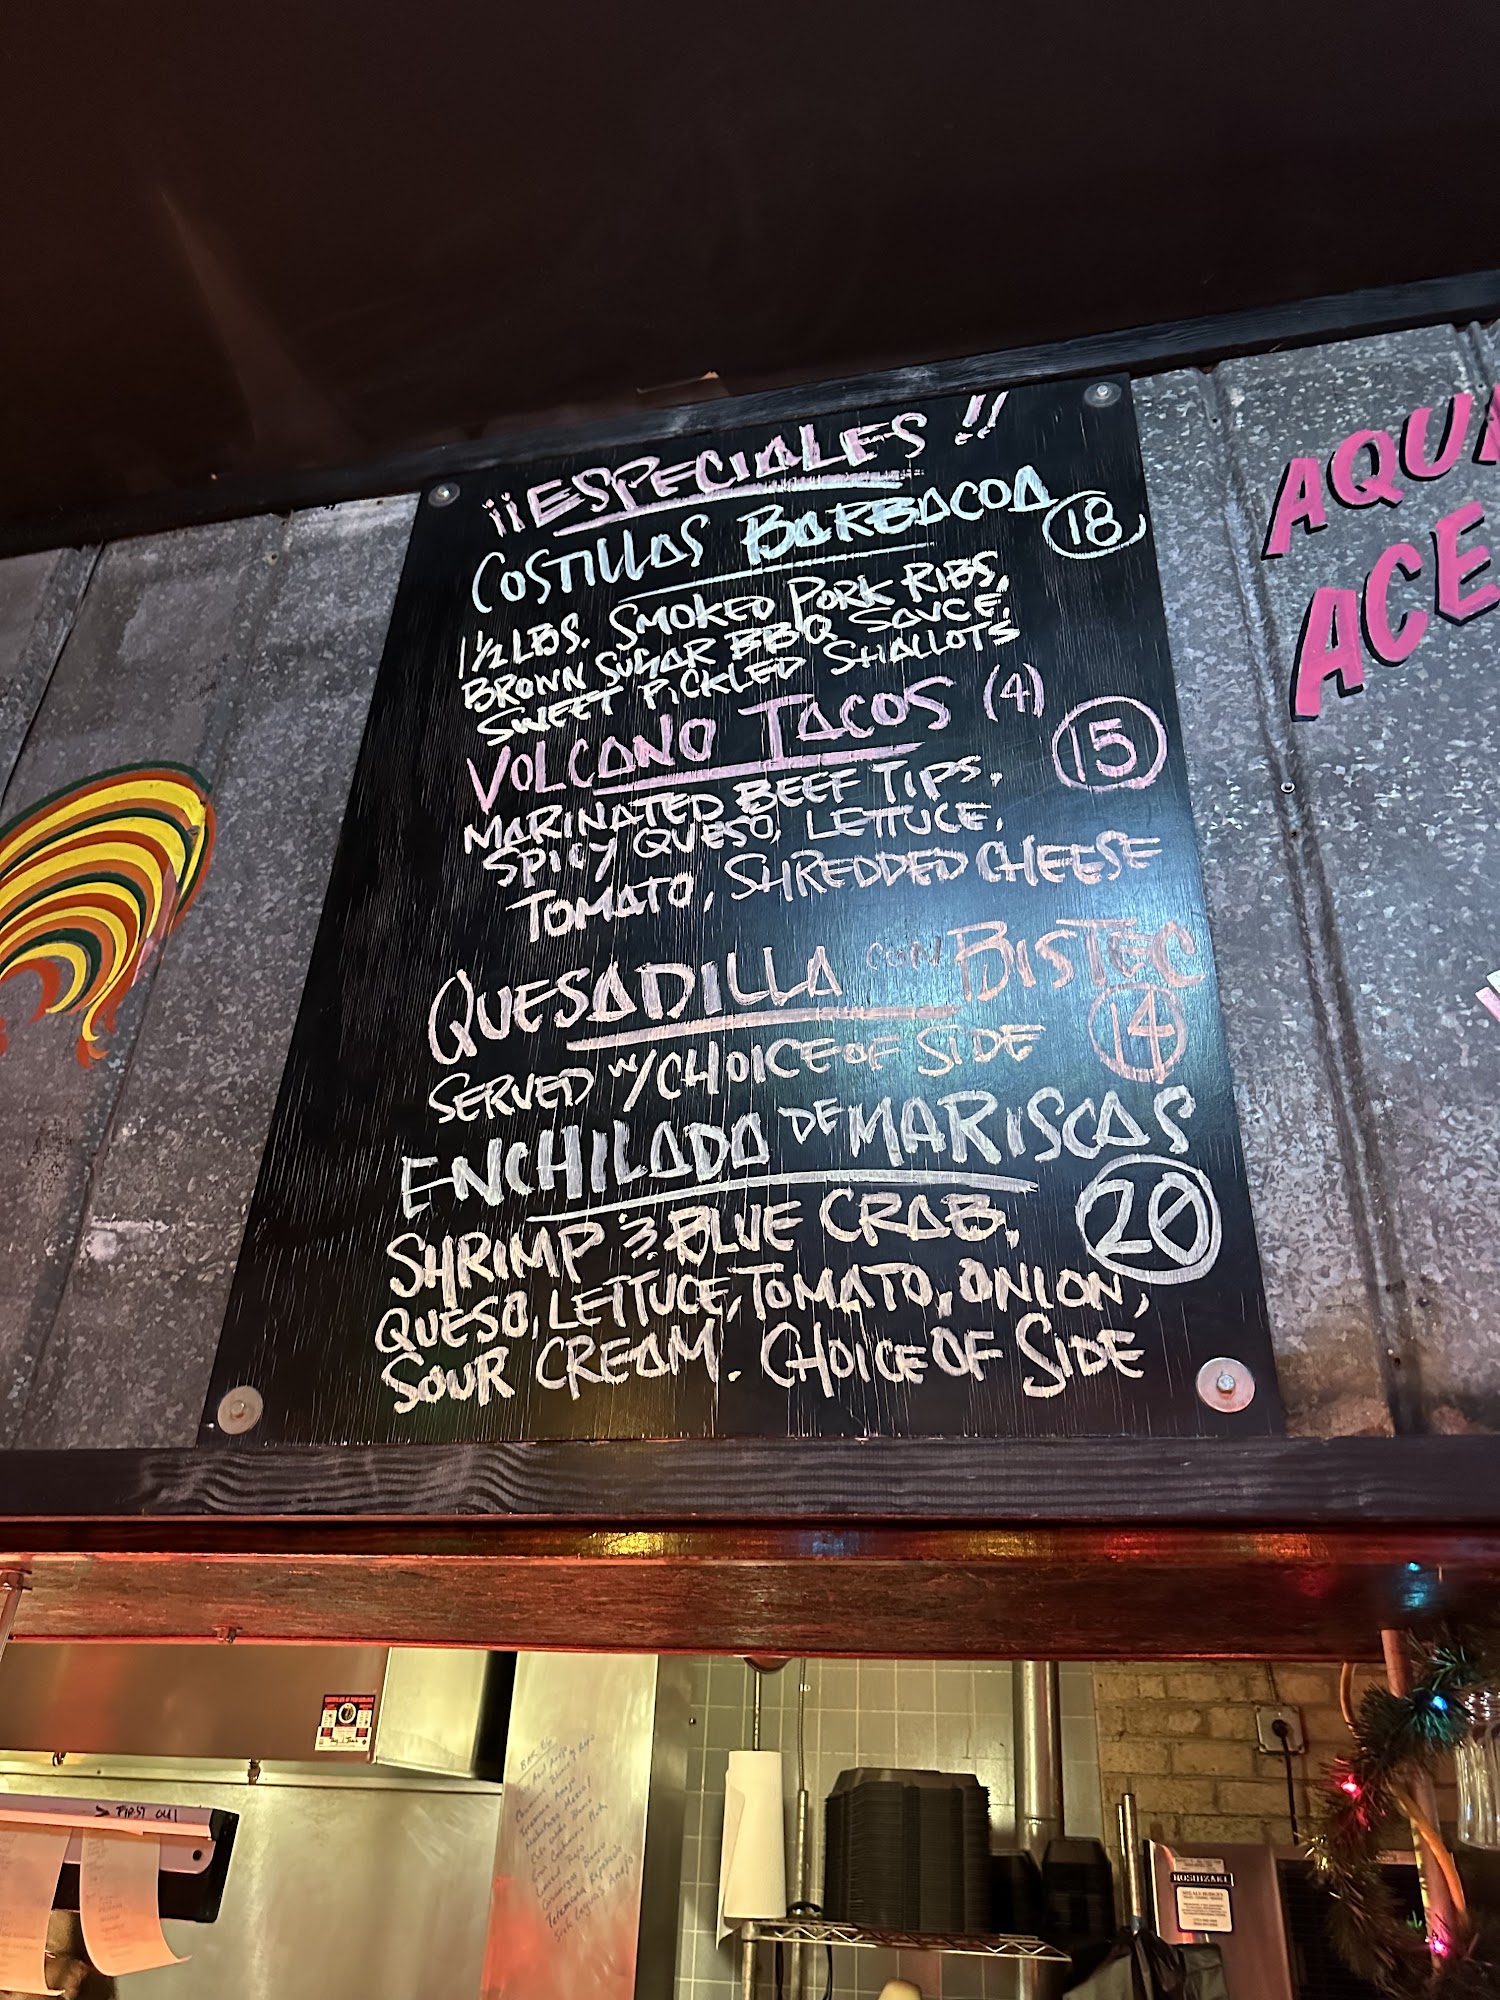 ¡¡ESPECIALES!!
COSTILLAS BARBACOA 18
1½ LBS. SMOKED PORK RIBS,
BROWN SUGAR BBQ SAUCE,
SWEET PICKLED SHALLOTS
VOLCANO TACOS (4) 15
MARINATED BEEF TIPS,
SPICY QUESO, LETTUCE,
TOMATO, SHREDDED CHEESE
QUESADILLA CON BISTEC
14
SERVED W/CHOICE OF SIDE
ENCHILADA DE MARISCAS
20
SHRIMP & BLUE CRAB,
QUESO, LETTUCE, TOMATO, ONION,
SOUR CREAM. CHOICE OF SIDE
AQU
ACE
> FIRST OUT
HOSHIZAKI